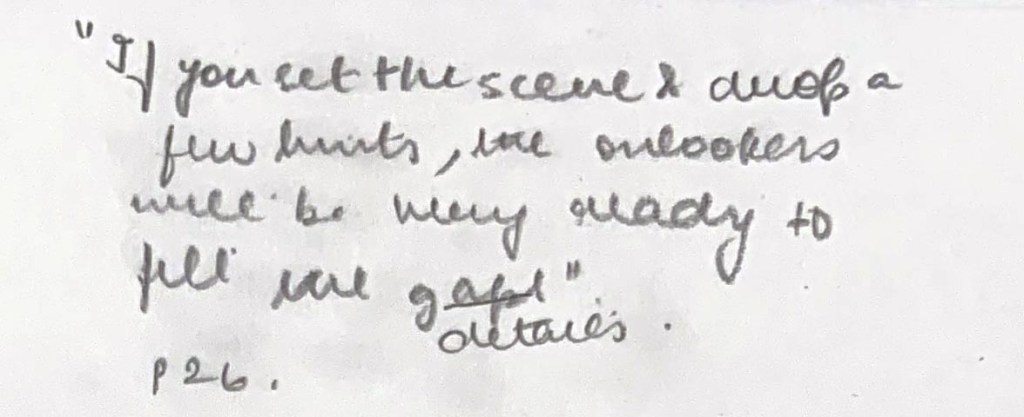 "If you set the scene & drop a
few hints, the onlookers
will be very ready to
fill the gaps"
details.
p 26.